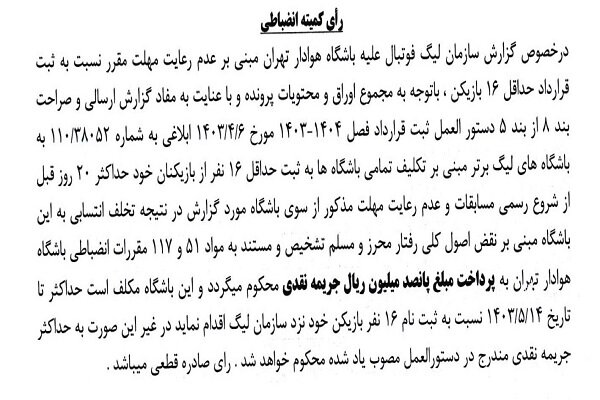 رأی کمیته انضباطی
درخصوص گزارش سازمان لیگ فوتبال علیه باشگاه هوادار تهران مبنی بر عدم رعایت مهلت مقرر نسبت به ثبت
قرارداد حداقل ۱۶ بازیکن ، باتوجه به مجموع اوراق و محتویات پرونده و با عنایت به مفاد گزارش ارسالی و صراحت
بند ۸ از بند ۵ دستور العمل ثبت قرارداد فصل ۱۴۰۴-۱۴۰۳ مورخ ۱۴۰۳/۴/۶ ابلاغی به شماره ۱۱۰/۳۸۰۵۲ به
باشگاه های لیگ برتر مبنی بر تکلیف تمامی باشگاه ها به ثبت حداقل ۱۶ نفر از بازیکنان خود حداکثر ۲۰ روز قبل
از شروع رسمی مسابقات و عدم رعایت مهلت مذکور از سوی باشگاه مورد گزارش در نتیجه تخلف انتسابی به این
باشگاه مبنی بر نقض اصول کلی رفتار محرز و مسلم تشخیص و مستند به مواد ۵۱ و ۱۱۷ مقررات انضباطی باشگاه
هوادار تهران به پرداخت مبلغ پانصد میلیون ریال جریمه نقدی محکوم میگردد و این باشگاه مکلف است حداکثر تا
تاریخ ۱۴۰۳/۵/۱۴ نسبت به ثبت نام ۱۶ نفر بازیکن خود نزد سازمان لیگ اقدام نماید در غیر این صورت به حداکثر
جریمه نقدی مندرج در دستورالعمل مصوب یاد شده محکوم خواهد شد . رای صادره قطعی میباشد .